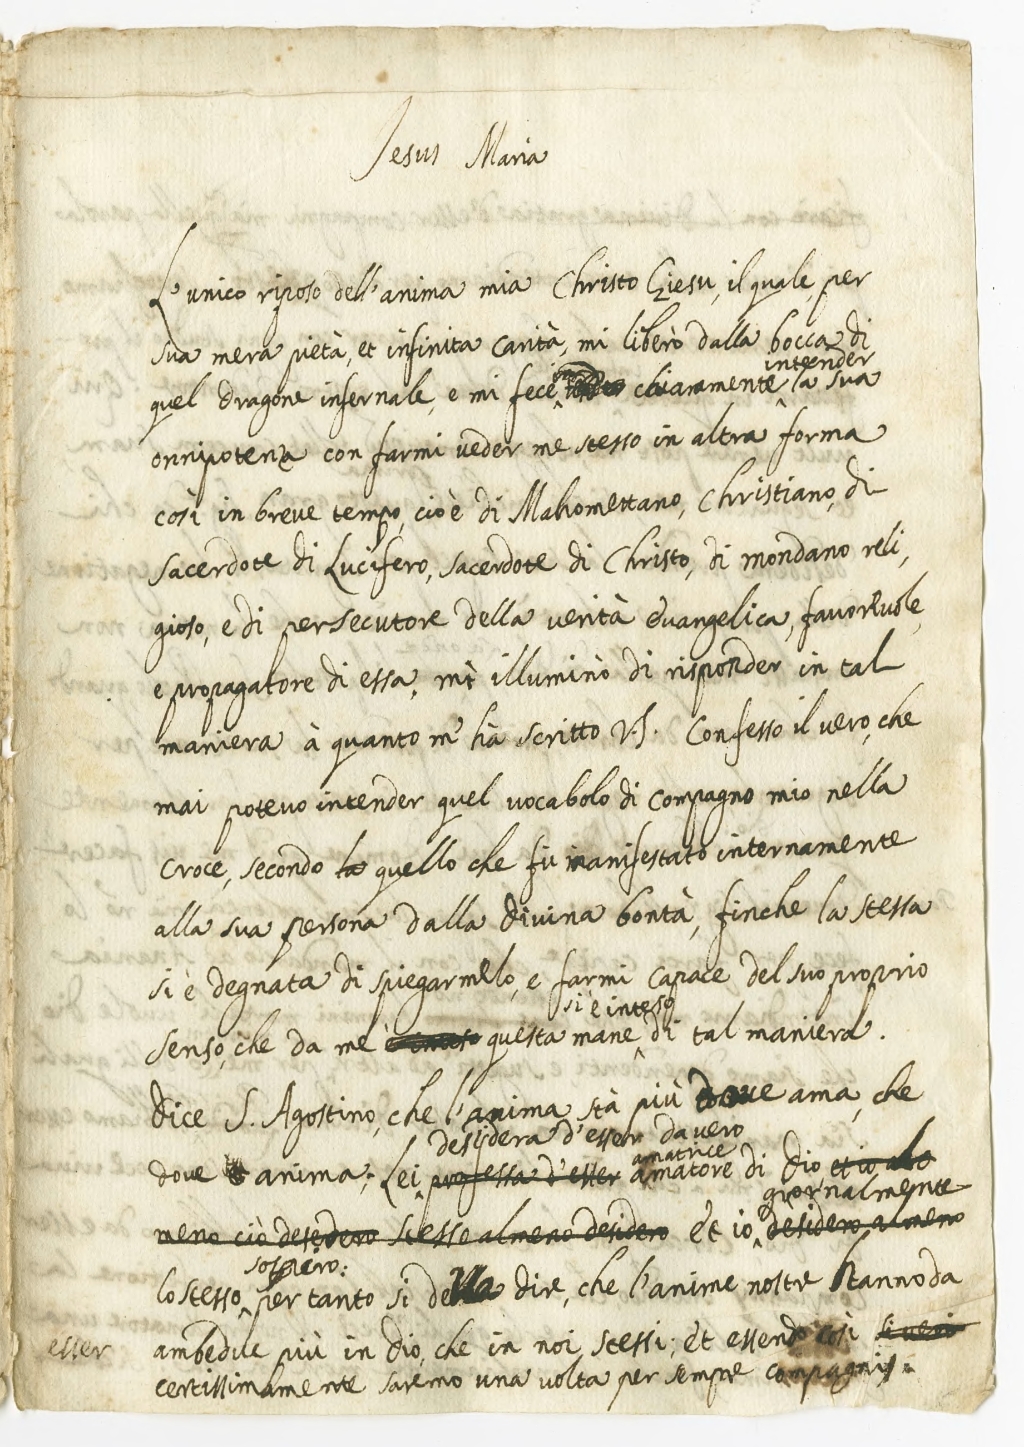 Jesus Maria
L'unico riposo dell'anima mia Christo Giesu, il quale, per
sua mera pietà, et infinita carità, mi liberò dalla bocca di
intender
quel dragone infernale, e mi fece chiaramente la sua
onnipotenza con farmi veder me stesso in altra forma
così in breve tempo, cioè di Mahomettano, Christiano, di
sacerdote di Lucifero, sacerdote di Christo, di mondano reli,
gioso, e di persecutore della verità evangelica, favorevole,
e propagatore di essa, mi illuminò di risponder in tal
maniera à quanto m'hà scritto V.S. Confesso il vero, che
mai potevo intender quel vocabolo di compagno mio nella
Croce, secondo la quello che fù manifestato internamente
alla sua persona dalla divina bontà, finche la stessa
si è degnata di spiegarmelo, e farmi capace del suo proprio
si è inteso
senso, che da me è inteso questa mane di tal maniera.
Dice S. Agostino, che l'anima stà più dove ama, che
desidera d'esser davero
amatrice
dove anima; Lei professa d'esser amatore di Dio et io al
giornalmente
meno ciò desidero stesso almeno desidero et io desidero almeno
sospiro:
lo stesso per tanto si della dire, che l'anime nostre stanno da
esser ambedue più in Dio, che in noi stessi; et essendo così
certissimamente saremo una volta per sempre compagni.